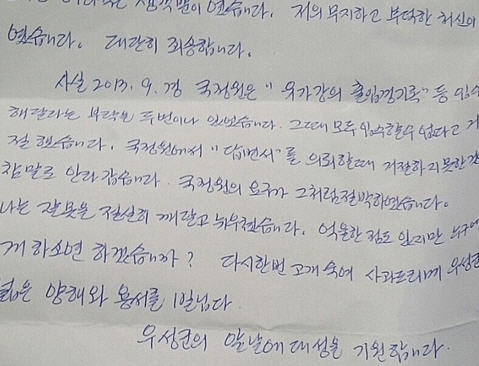 였습니다. 저의 무지하고 부덕한 처신이
였습니다. 대단히 죄송합니다.
사실 2013. 9. 경 국정원은 "유가강의 출입경기록" 등 입수
해달라는 부탁을 두번이나 있었습니다. 그때 모두 입수할수 없다고 거
절 했습니다. 국정원에서 "답변서"를 의뢰할때 거절하지 못한 것
참말로 안타깝습니다. 국정원의 요구가 그처럼 절박하였습니다.
나는 잘못을 절실히 깨닫고 뉘우쳤습니다. 억울한 점도 있지만 누구에
게 하소연 하겠습니까? 다시한번 고개 숙여 사과드리며 우성씨
넓은 양해와 용서를 빕니다
우성씨의 앞날에 대성을 기원합니다.